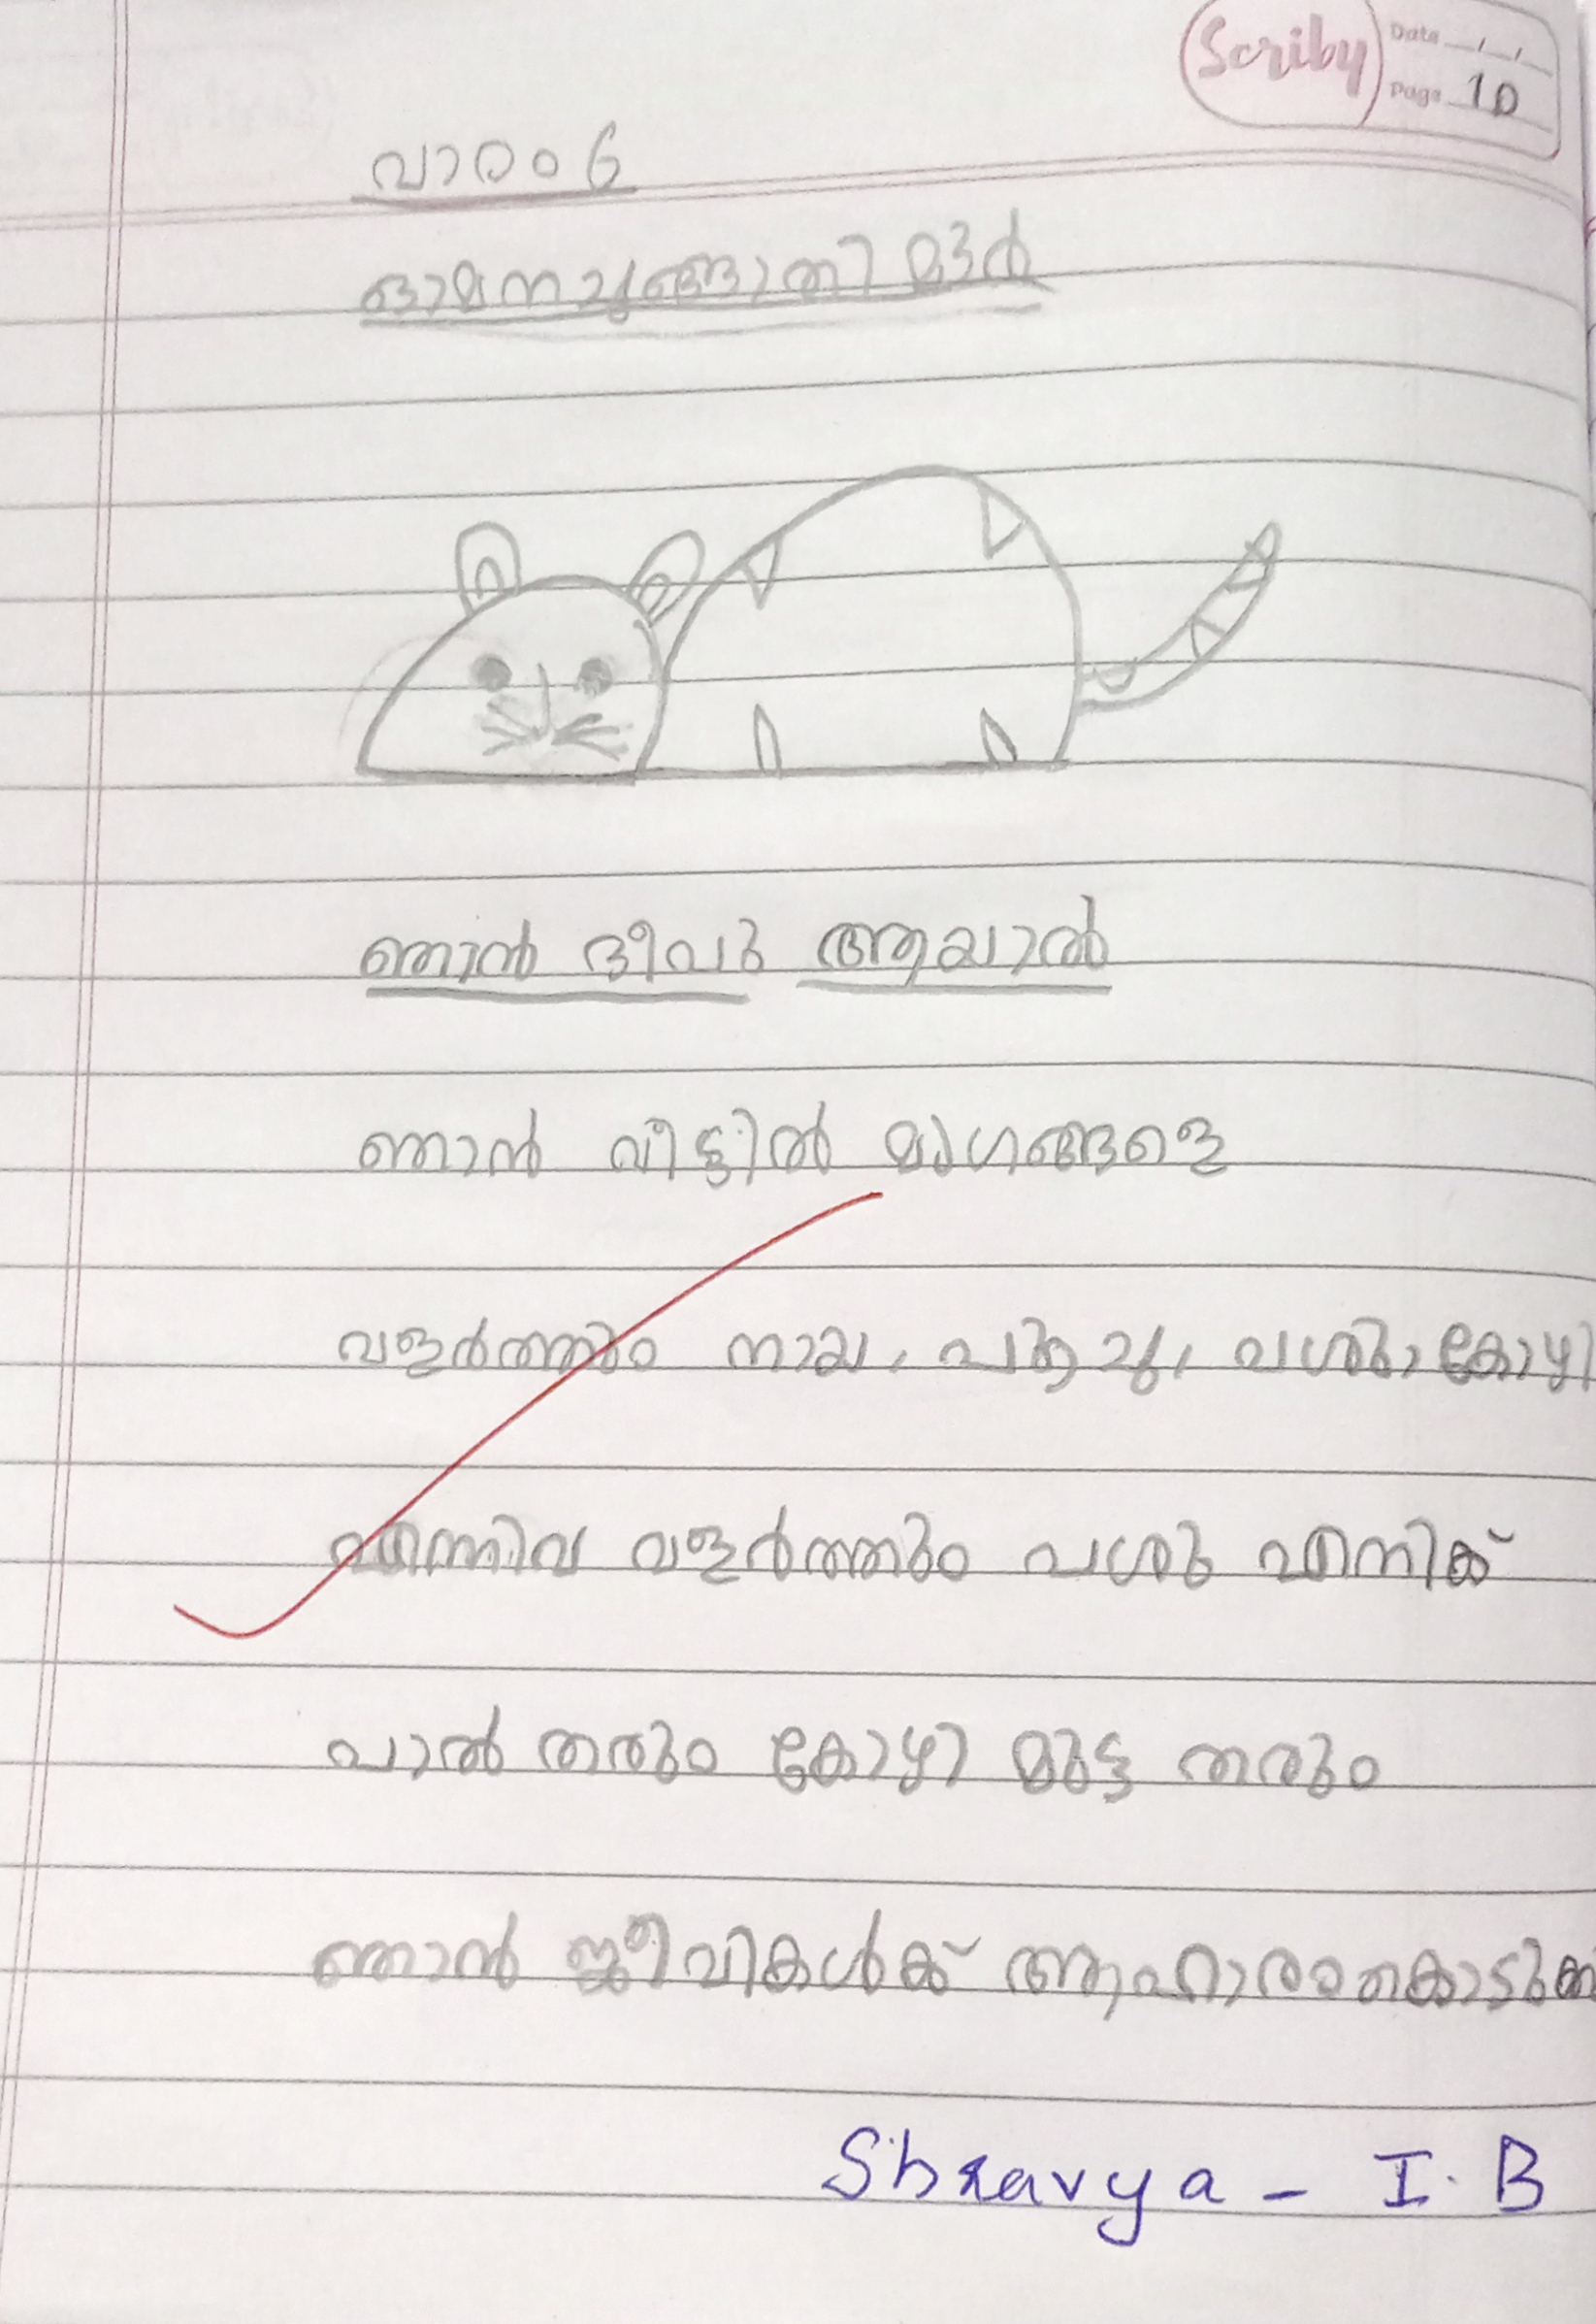 Scriby
Data
Page 10
വാരം 6
ഓമനചങ്ങാതിമാർ
ഞാൻ ദീപു ആയാൽ
ഞാൻ വീട്ടിൽ മൃഗങ്ങളെ
വളർത്തും നായ, പൂച്ച, പശു, കോഴി
എന്നിവ വളർത്തും പശു എനിക്ക്
പാൽ തരും കോഴി മുട്ട തരും
ഞാൻ ജീവികൾക്ക് ആഹാരം
Shravya - I. B